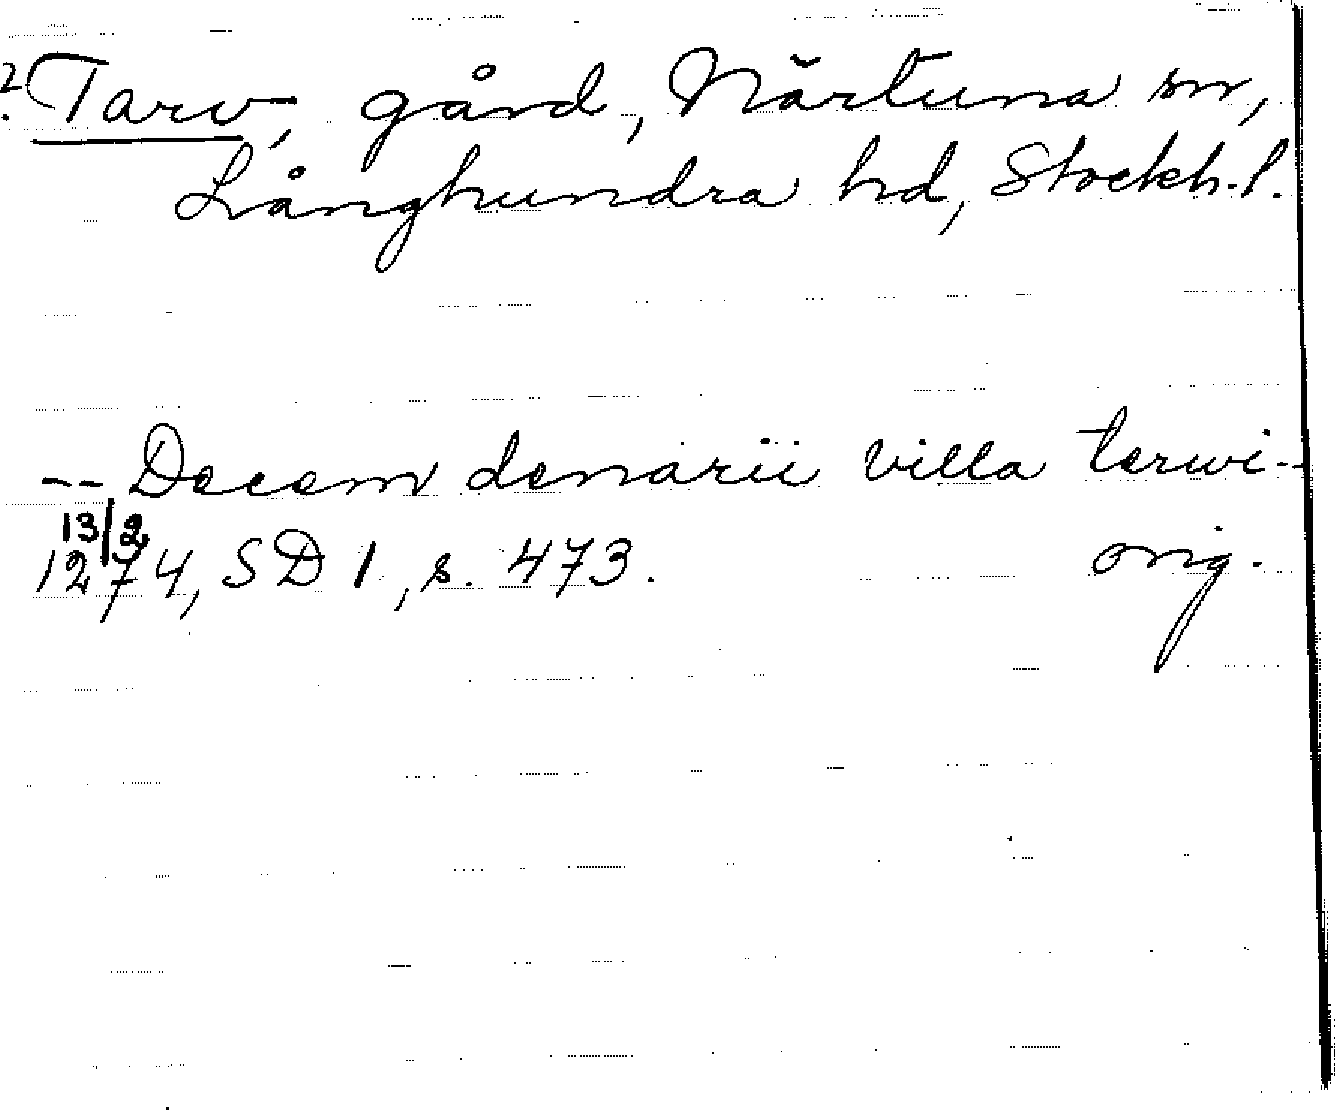 ? Tarv, gård, Närtuna sn,
Långhundra hd, Stockh. l.
-- Decem denarii villa terwi --
13/2
1274, SD 1, s. 473. orig.